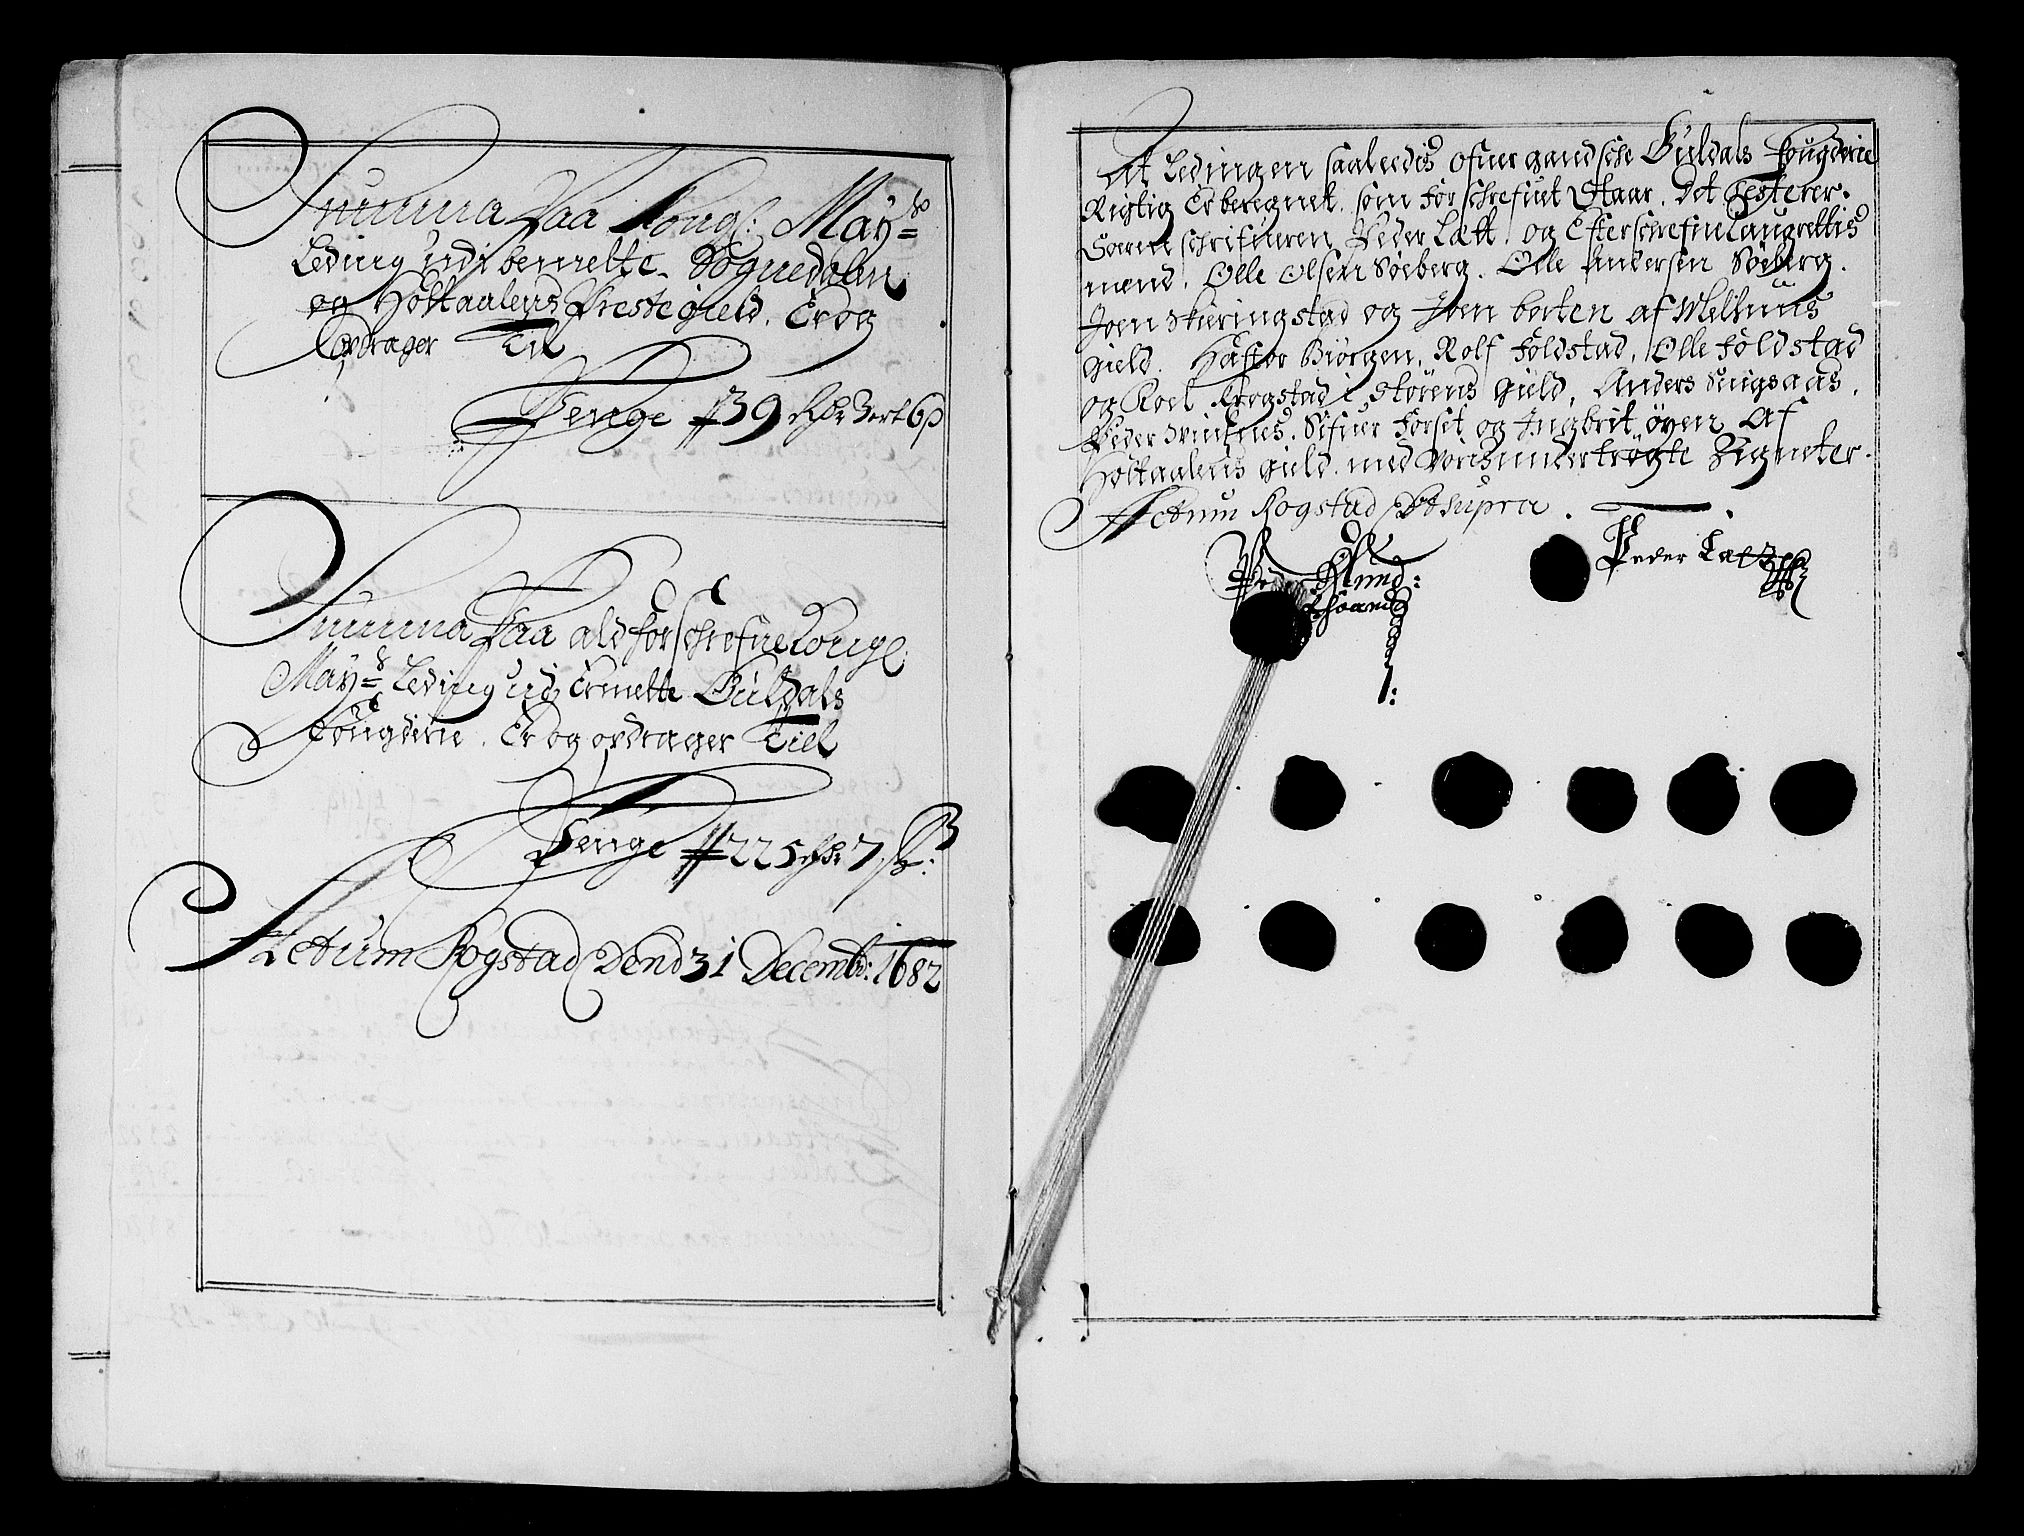 Summa Paa Kongl: May=ts
Leding udi bemelte Sognedalen
og Holtaalens Prestegield. Er og
Bedrager Til
Penge # 39 Rdr 3 ort 6 ß
Summa Paa ald forschrefne Kongl:
May=s Leding udj bemelte Guldals
Fougderie. Er og bedrager Tiel
Penge # 225 Rdr 7 ß:
Actum Rogstad Dend 31 Decembr: 1682
At Ledingen saaleedis ofuer gandsche Guldals Fougderie
Rigtig Er beregnet, som forschrefuet Staar. Det Testerer
Sorenschrifueren Peder Catt. og Efterschrefne Laugrettis
mend. Olle Olsen Søeberg. Olle Andersen Søeberg.
Joen Skieringstad og Joen borten af Melhuus
gield. Haftor Biørgen. Rolf Foldstad. Olle Foldstad
og Roel Krogstad i Størens gield. Anders Singsaas.
Peder Svinsnes. Sifuer Forset og Ingbrit øyen Af
Holtaalens gield. med Voris undertrøgte Zigneter.
Actum Rogstad Ut supra.
Peder Catt